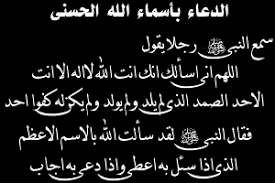 الدعاء بأسماء الله الحسنى
سمع النبي ﷺ رجلا يقول
اللهم انى اسألك انك انت الله لا اله الا انت
الاحد الصمد الذى لم يلد ولم يولد ولم يكن له كفوا احد
فقال النبى ﷺ لقد سألت الله بالاسم الاعظم
الذى اذا سئل به اعطى واذا دعى به اجاب